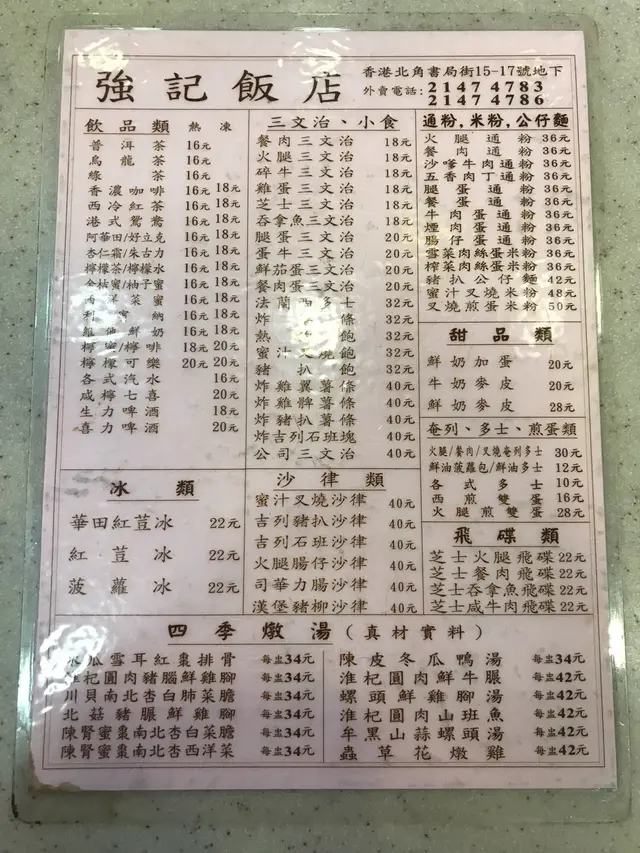 強記飯店
香港北角書局街15-17號地下
外賣電話: 2147 4783
2147 4786
飲品類 熱 凍
普洱茶 16元
烏龍茶 16元
綠茶 16元
香濃咖啡 16元 18元
西冷紅茶 16元 18元
港式鴛鴦 16元 18元
阿華田/好立克 16元 18元
杏仁霜/朱古力 16元 18元
檸檬茶/檸檬水 16元 18元
金桔蜜/柚子蜜 16元 18元
西洋菜蜜 16元 18元
利賓納 16元 18元
鮮奶 16元 18元
檸蜜/檸啡 18元 20元
檸檬可樂 20元 20元
各式汽水 16元
咸檸七喜 20元
生力啤酒 18元
喜力啤酒 20元
三文治、小食
餐肉三文治 18元
火腿三文治 18元
碎牛三文治 18元
雞蛋三文治 18元
芝士三文治 18元
吞拿魚三文治 18元
腿蛋三文治 20元
蛋牛三文治 20元
鮮茄蛋三文治 20元
餐肉蛋三文治 20元
法蘭西多士 32元
炸薯條 32元
熱狗飽 32元
蜜汁叉燒飽 32元
豬扒飽 32元
炸雞翼薯條 40元
炸雞髀薯條 40元
炸豬扒薯條 40元
炸吉列石班塊 40元
公司三文治 40元
通粉,米粉,公仔麵
火腿通粉 36元
餐肉通粉 36元
沙嗲牛肉通粉 36元
五香肉丁通粉 36元
腿蛋通粉 36元
餐蛋通粉 36元
牛肉蛋通粉 36元
煙肉蛋通粉 36元
腸仔蛋通粉 36元
雪菜肉絲蛋米粉 36元
榨菜肉絲蛋米粉 36元
豬扒公仔麵 42元
蜜汁叉燒米粉 48元
叉燒煎蛋米粉 50元
甜品類
鮮奶加蛋 20元
牛奶麥皮 20元
鮮奶麥皮 28元
奄列、多士、煎蛋類
火腿/餐肉/叉燒奄列多士 30元
鮮油菠蘿包/鮮油多士 12元
各式多士 10元
西煎雙蛋 16元
火腿煎雙蛋 28元
冰類
華田紅荳冰 22元
紅荳冰 22元
菠蘿冰 22元
沙律類
蜜汁叉燒沙律 40元
吉列豬扒沙律 40元
吉列石班沙律 40元
火腿腸仔沙律 40元
司華力腸沙律 40元
漢堡豬柳沙律 40元
飛碟類
芝士火腿飛碟 22元
芝士餐肉飛碟 22元
芝士吞拿魚飛碟 22元
芝士咸牛肉飛碟 22元
四季燉湯(真材實料)
木瓜雪耳紅棗排骨 每盅34元
淮杞圓肉豬腦鮮雞腳 每盅34元
川貝南北杏白肺菜膽 每盅34元
北菇豬脤鮮雞腳 每盅34元
陳腎蜜棗南北杏白菜膽 每盅34元
陳腎蜜棗南北杏西洋菜 每盅34元
陳皮冬瓜鴨湯 每盅34元
淮杞圓肉鮮牛脤 每盅42元
螺頭鮮雞腳湯 每盅42元
淮杞圓肉山班魚 每盅42元
牟黑山蒜螺頭湯 每盅42元
蟲草花燉雞 每盅42元